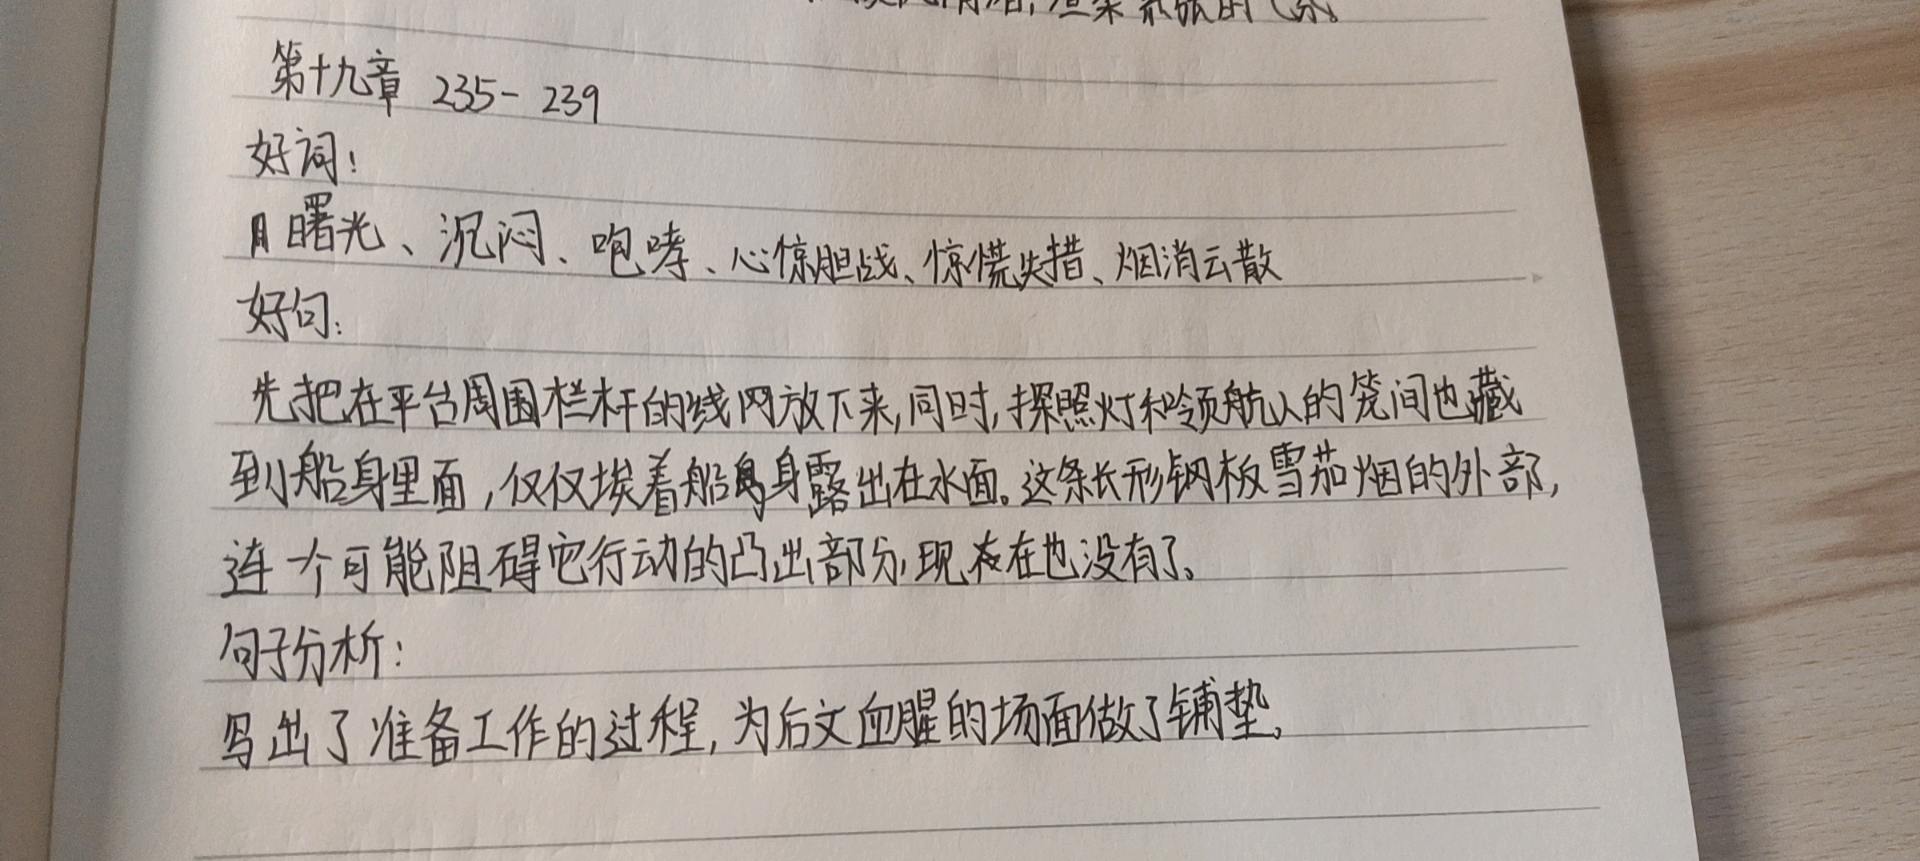 渲染紧张的气氛
第十九章 235-239
好词:
曙光、沉闷、咆哮、心惊胆战、惊慌失措、烟消云散
好句:
先把在平台周围栏杆的线网放下来,同时,探照灯和领航人的笼间也藏
到船身里面,仅仅挨着船身露出在水面。这条长形钢板雪茄烟的外部,
连一个可能阻碍它行动的凸出部分,现在也没有了。
句子分析:
写出了准备工作的过程,为后文血腥的场面做了铺垫。